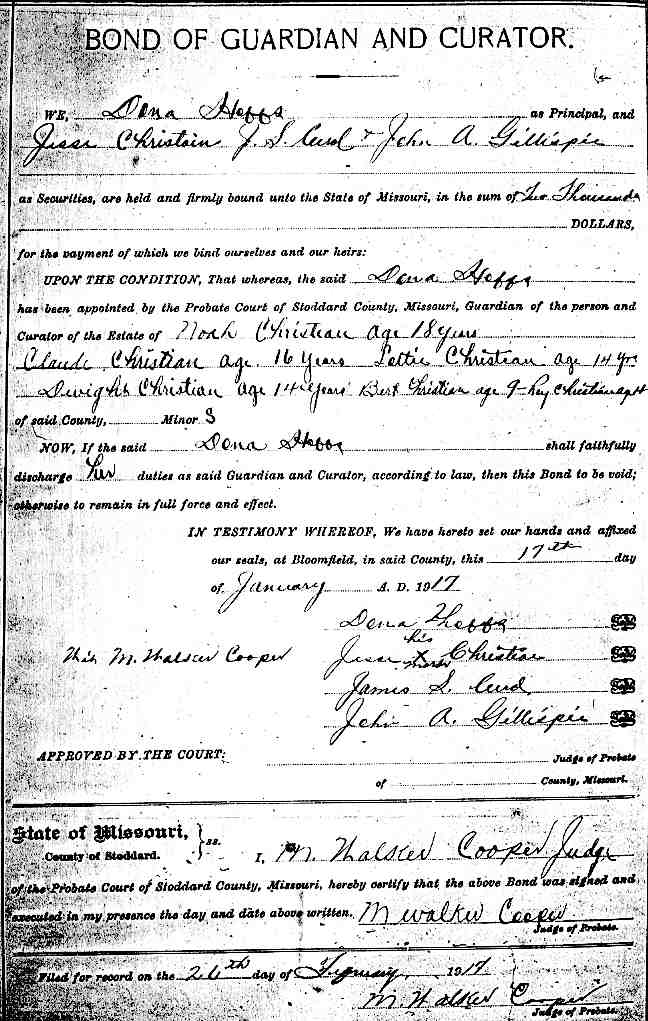 BOND OF GUARDIAN AND CURATOR.
WE, Dena Hopps as Principal, and
Jesse Christain J. S. Curd & John A. Gillispie
as Securities, are held and firmly bound unto the State of Missouri, in the sum of Two Thousands
DOLLARS,
for the payment of which we bind ourselves and our heirs:
UPON THE CONDITION, That whereas, the said Dena Hopps
has been appointed by the Probate Court of Stoddard County, Missouri, Guardian of the person and
Curator of the Estate of Noah Christian age 18 years
Claude Christian age. 16 years Lettie Christian age 14 yrs
Dwight Christian age 14 years Bert Christian age 9- Roy Christian age
of said County, Minor S
NOW, If the said Dena Hopps shall faithfully
discharge her duties as said Guardian and Curator, according to law, then this Bond to be void;
otherwise to remain in full force and effect.
IN TESTIMONY WHEREOF, We have hereto set our hands and affixed
our seals, at Bloomfield, in said County, this 17th day
of January A. D. 1917
Dena Hopps
his
M. Walker Cooper Jesse X Christian
mark
James S. Curd
John A. Gillispie
APPROVED BY THE COURT:
Judge of Probate
of County, Missouri.
State of Missouri, } ss.
County of Stoddard. I, M. Walker Cooper Judge
of the Probate Court of Stoddard County, Missouri, hereby certify that the above Bond was signed and
executed in my presence the day and date above written. M Walker Cooper
Judge of Probate.
Filed for record on the 26th day of February 1917
M. Walker Cooper
Judge of Probate.